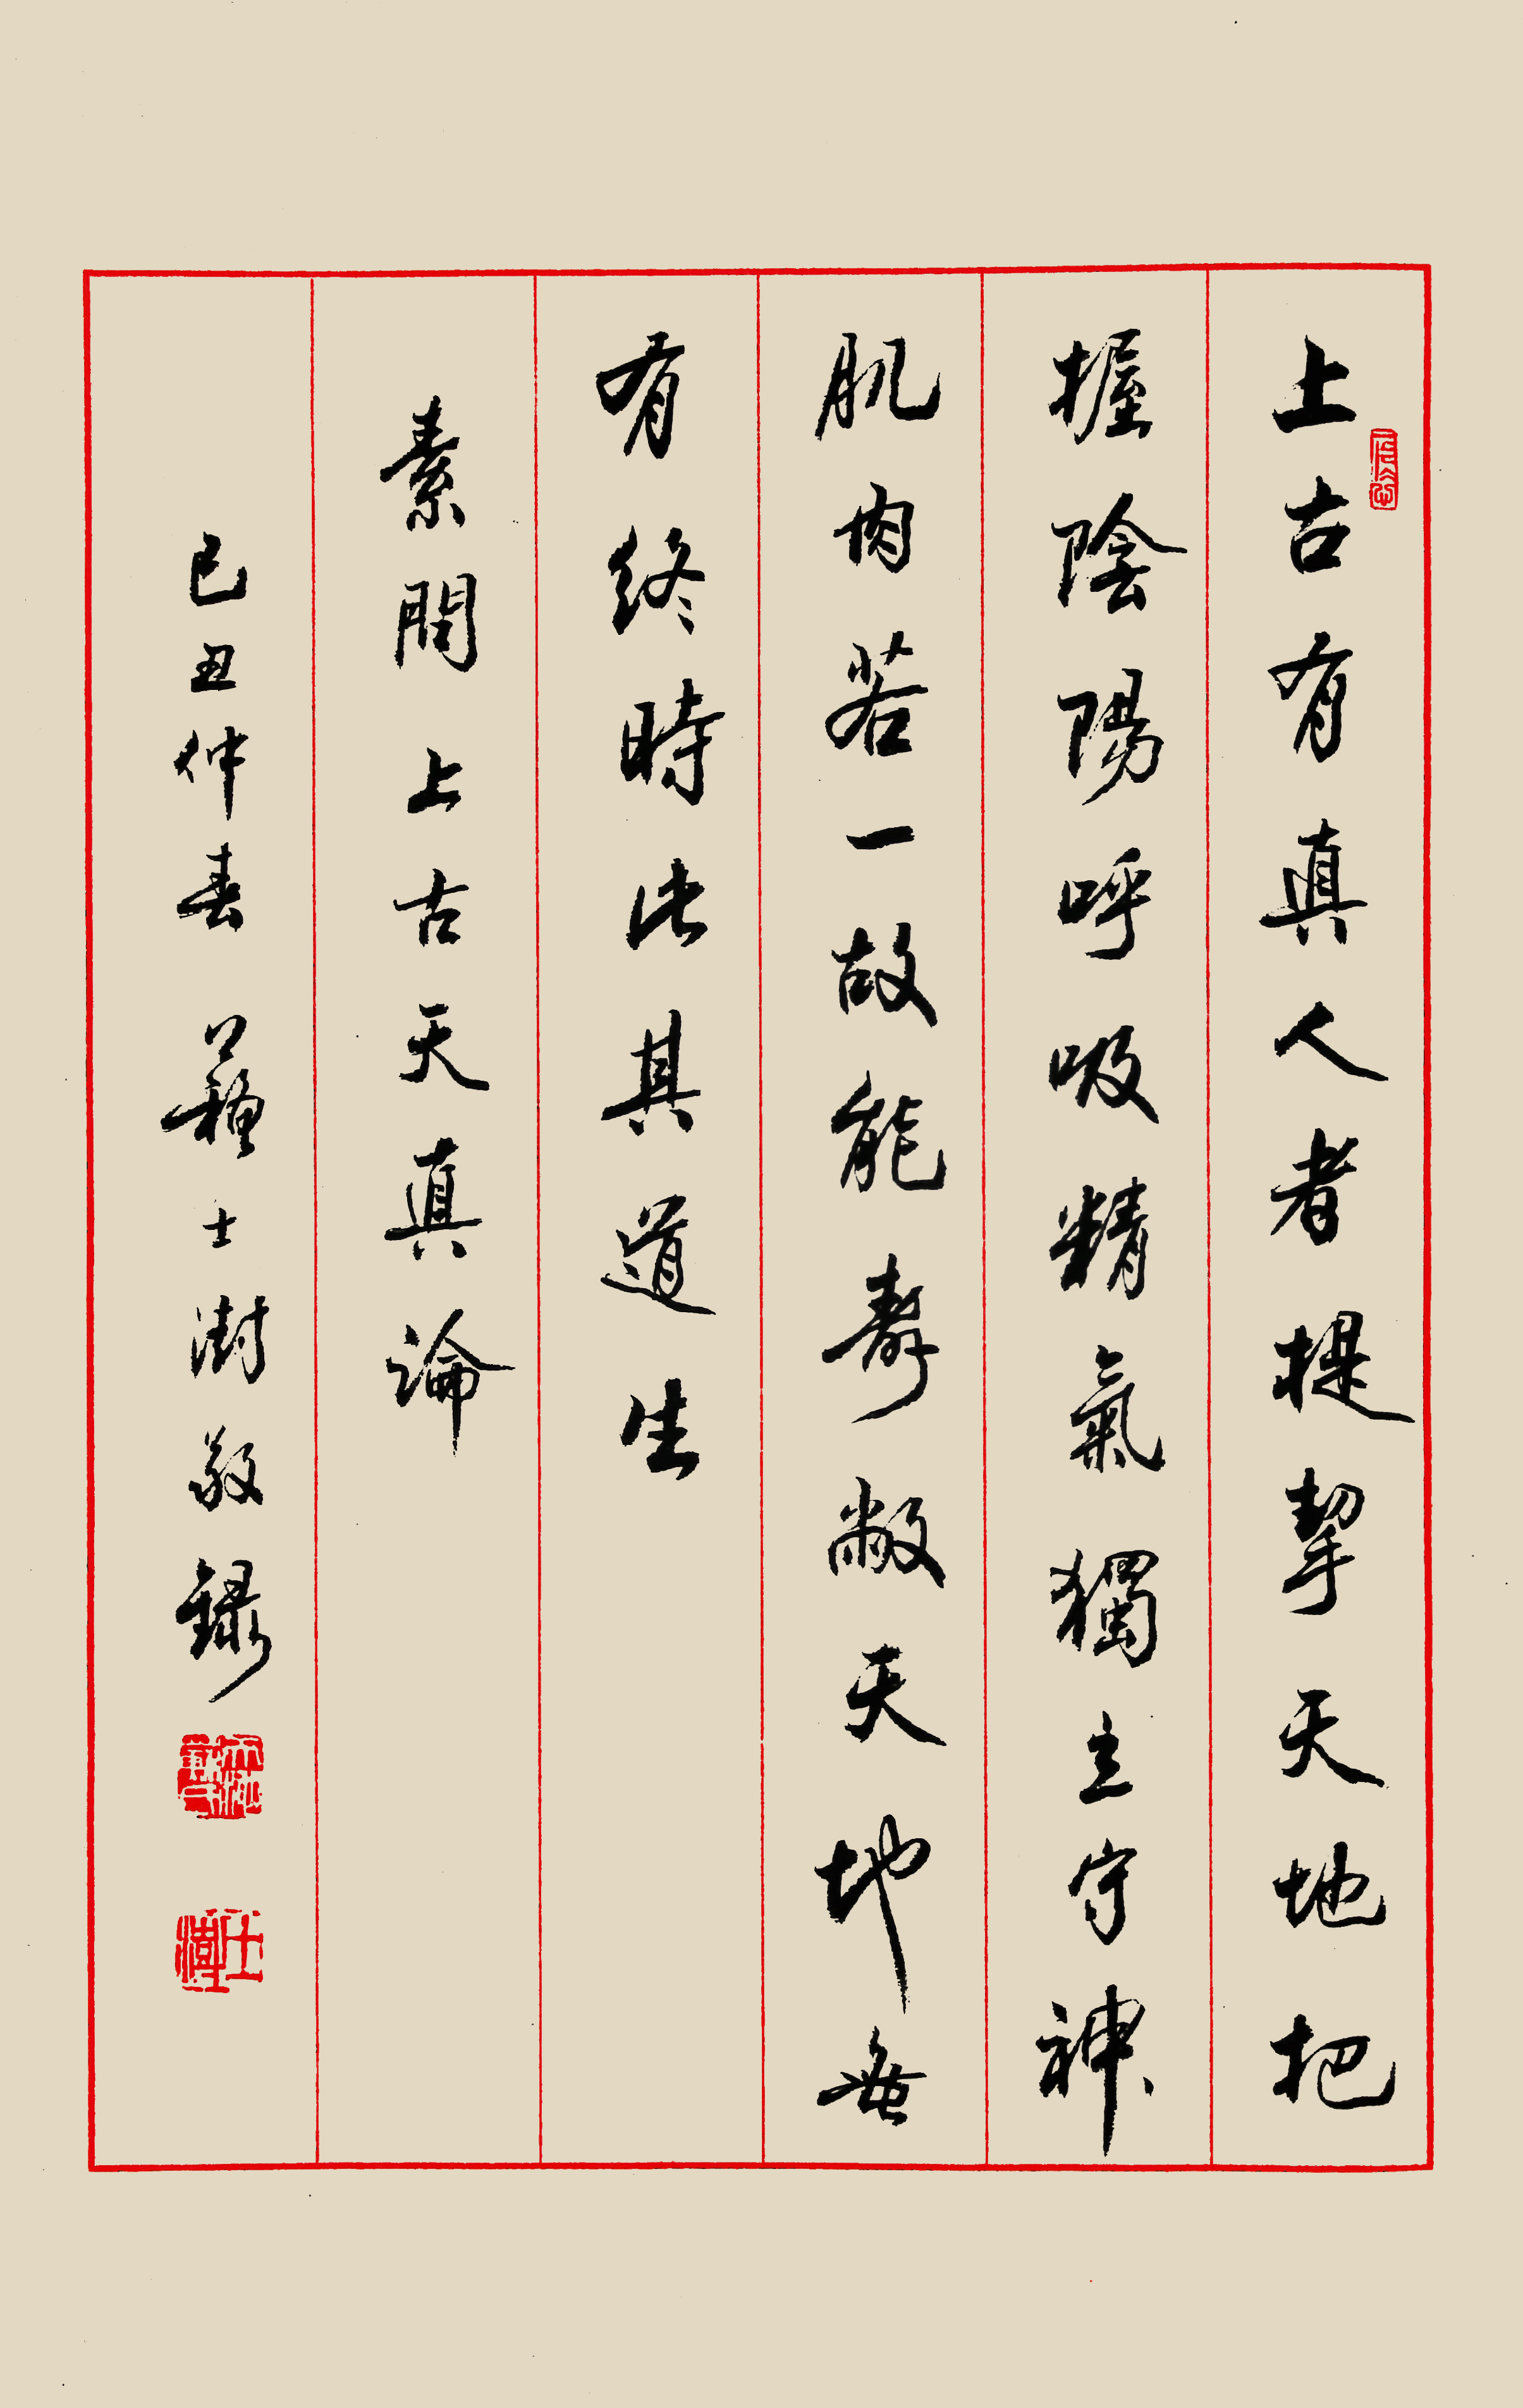 上古有真人者提挈天地把
握陰陽呼吸精氣獨立守神
肌肉若一故能壽敝天地無
有終時此其道生
素問上古天真論
己丑仲春 蘇士澍敬錄